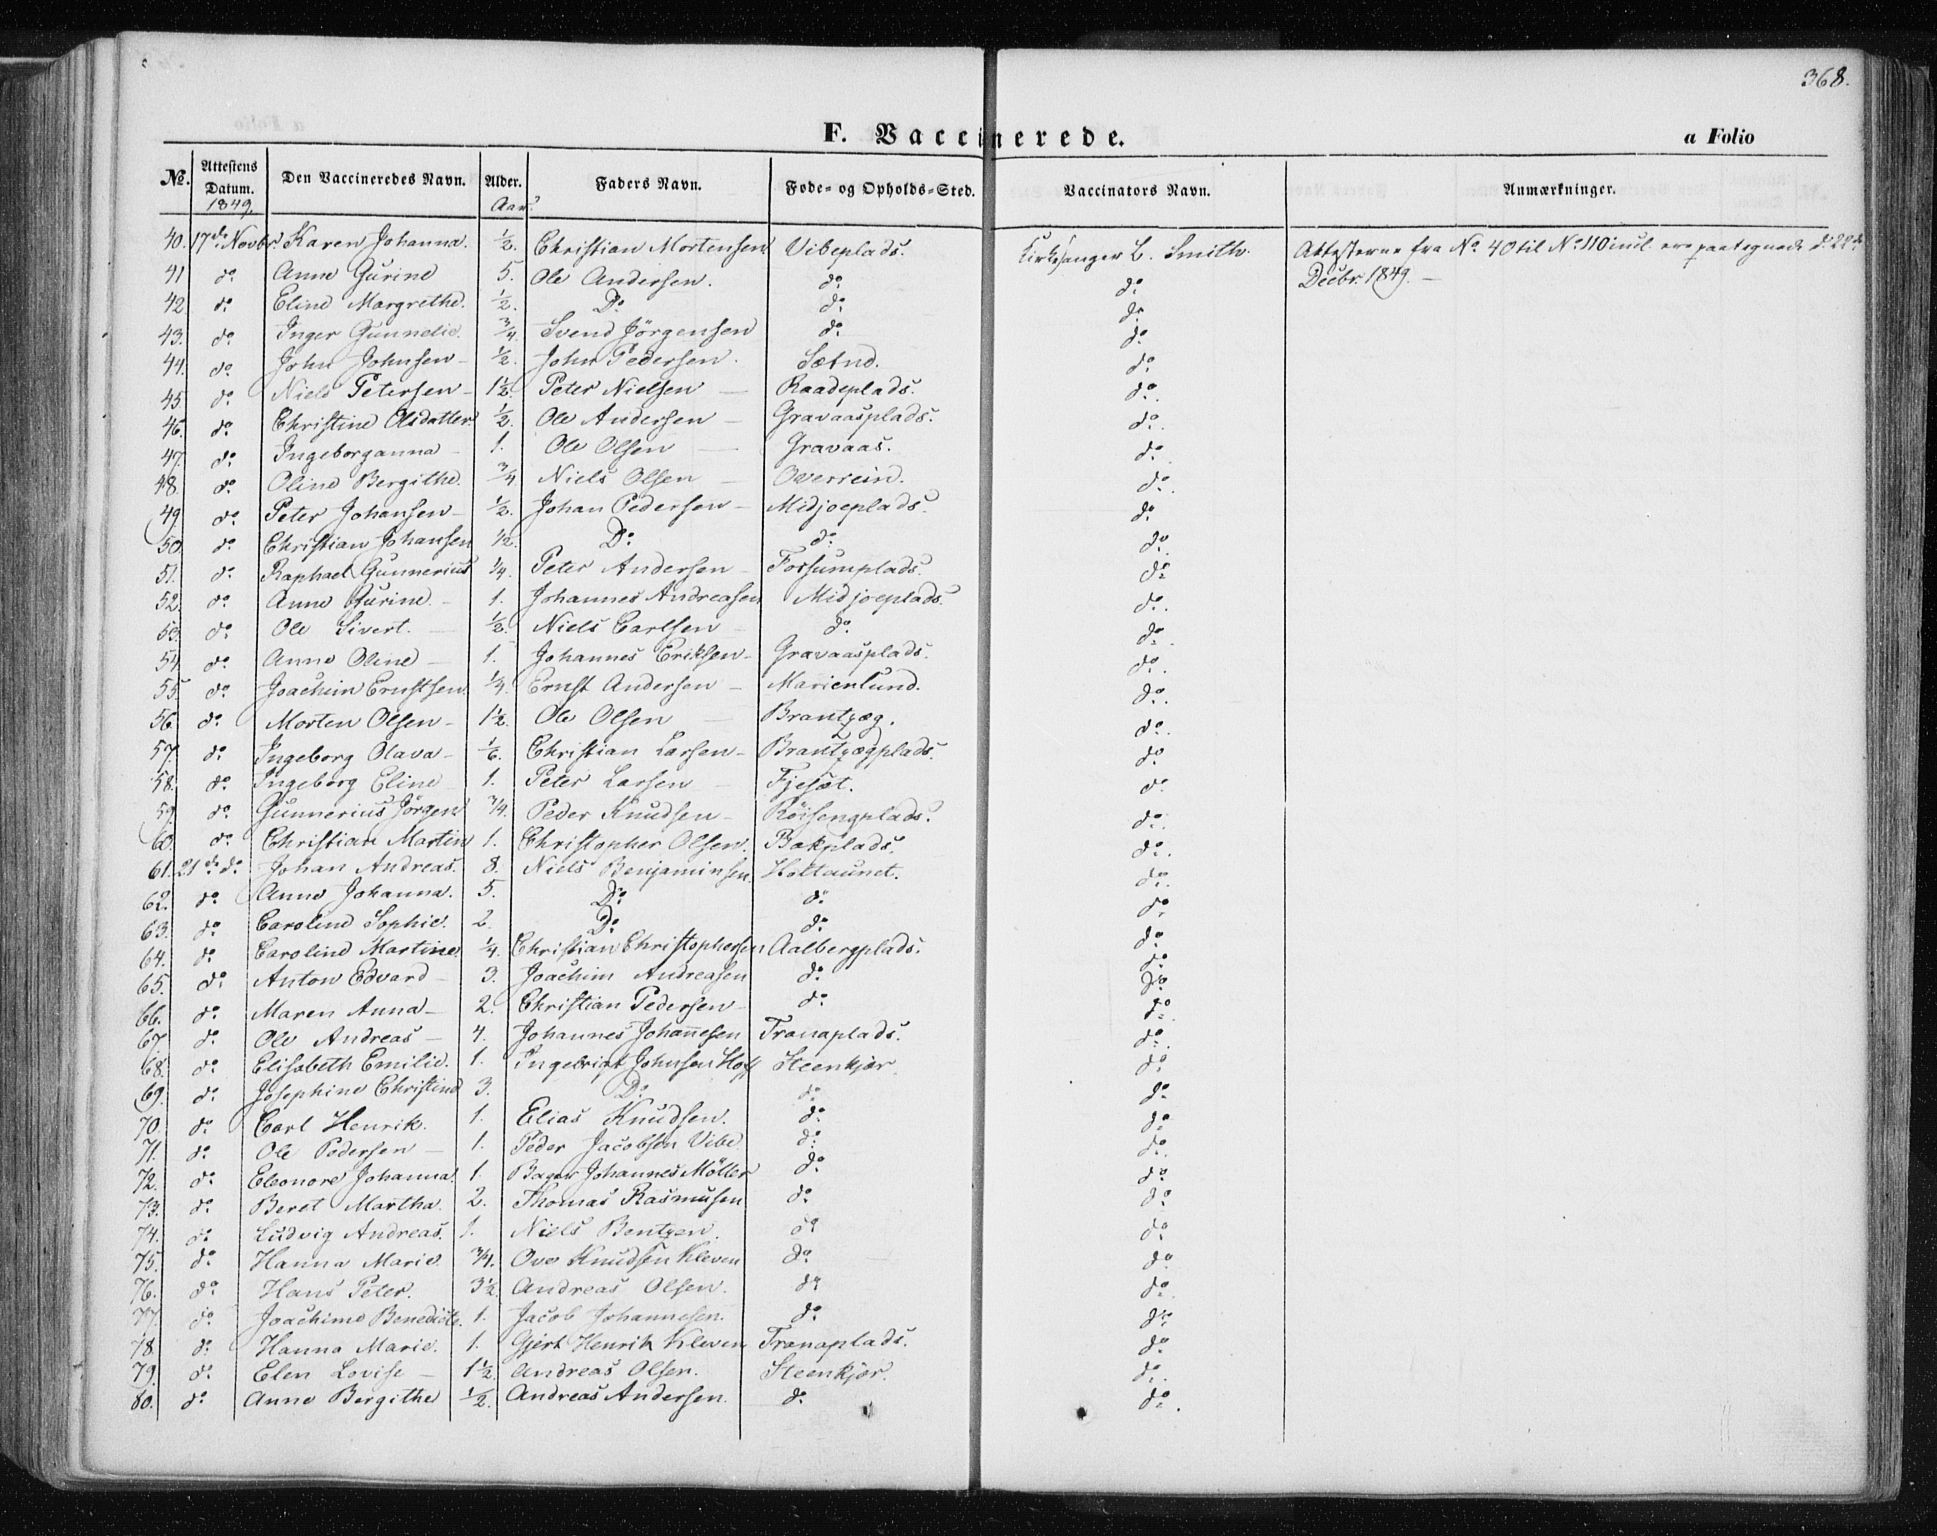 368.
F. Vaccinerede.
a Folio
№. Attestens Datum. Den Vaccineredes Navn. Alder. Faders Navn. Føde- og Opholds-Sted. Vaccinators Navn. Anmærkninger.
1849. Aar.
40. 17de Novbr. Karen Johanna. ½. Christian Mortensen Vibeplads. Kirkesanger L. Smith. Attesterne fra No 40 til No 110 incl. ere paategnede d. 22de
Decbr. 1849. —
41 do Anne Gurine 5. Ole Andersen. do do
42. do Eline Margrethe. ½. Do do do
43. do Inger Gunnelie. ¾ Svend Jörgensen do do
44. do John Johnsen — ½. John Pedersen. Sætnd. do
45. do Niels Petersen — 1½. Peter Nielsen — Raadeplads. do
46. do Christine Olsdatter ½. Ole Andersen — Gravaasplads. do
47. do Ingeborganna — 1. Ole Olsen — Gravaas. do
48. do Oline Bergithe. ¾ Niels Olsen — Overrein. do
49. do Peter Johansen — ½. Johan Pedersen — Midjoeplads. do
50. do Christian Johansen ½. Do do do
51. do Raphael Gunnerius ¼. Peter Andersen — Forsumplads. do
52. do Anne Gurine. — 1. Johannes Andreasen Midjoeplads. do
53. do Ole Sivert. — ½. Niels Carlsen — do do
54. do Anne Oline — 1. Johannes Eriksen — Gravaasplads. do
55. do Joachim Ernstsen ¼. Ernst Andersen — Marienlund. do
56. do Morten Olsen — 1½. Ole Olsen — Brantzæg. do
57. do Ingeborg Olava — 1/6. Christian Larsen — Brantzægplads. do
58. do Ingeborg Eline 1. Peter Larsen — Fjesæt. do
59. do Gunnerius Jörgen ¾. Peder Knudsen — Röisengplads. do
60. do Christian Martin 1. Christopher Olsen. Bakplads. do
61. 21de do Johan Andreas. 8. Niels Benjaminsen. Holtaunet. do
62. do Anne Johanna. 5. Do do do
63. do Caroline Sophie. 2. Do do do
64. do Caroline Martine. ¼. Christian Christophersen Aalbergplads. do
65. do Anton Edvard — 3. Joachim Andreasen do do
66. do Maren Anna — 2. Christian Pedersen — do do
67. do Ole Andreas — 4. Johannes Johannesen Tranaplads. do
68. do Elisabeth Emilie. 1. Ingebrigt Johnsen Hoff Steenkjær. do
69. do Josephine Christine 3. Do do do
70. do Carl Henrik. 1. Elias Knudsen. do do
71. do Ole Pedersen — 1. Peder Jacobsen Vibe do do
72. do Eleonore Johanna. 1. Bager Johannes Möller do do
73. do Beret Martha. 2. Thomas Rasmusen do do
74. do Ludvig Andreas. 1. Niels Bentzen. do do
75. do Hanna Marie. ¾. Ove Knudsen Kleven do do
76. do Hans Peter. 3½. Andreas Olsen. do do
77. do Joachime Benedicte. 1. Jacob Johannesen. do do
78. do Hanna Marie. 1. Gjert Henrik Kleven Tranaplads. do
79. do Elen Lovise — 1½. Andreas Olsen. Steenkjær. do
80. do Anne Bergithe ½. Andreas Andersen. do do